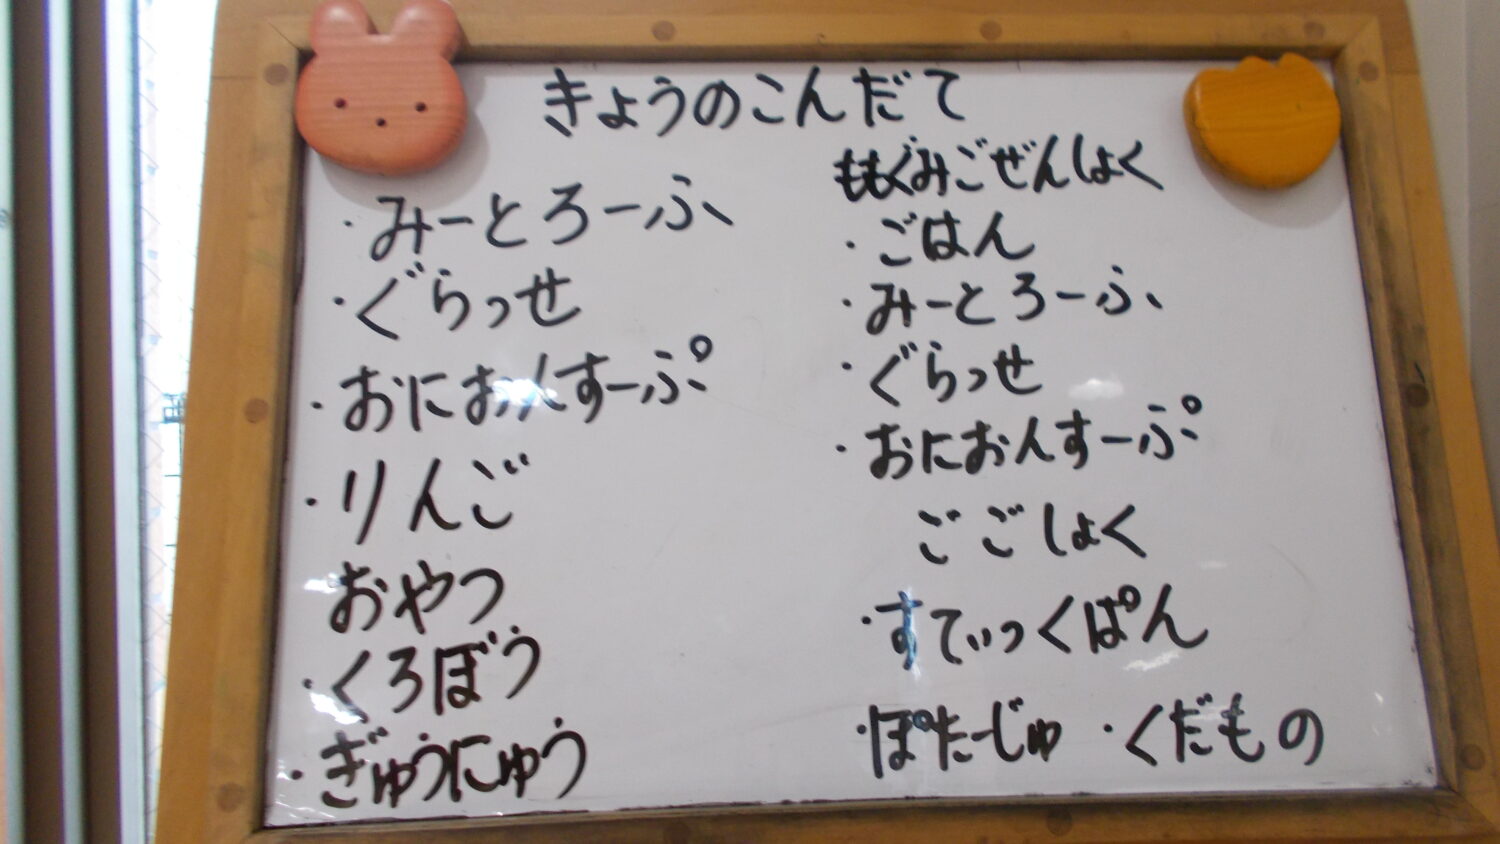 きょうのこんだて
・みーとろーふ
・ぐらっせ
・おにおんすーぷ
・りんご
おやつ
・くろぼう
・ぎゅうにゅう
ももぐみごぜんしょく
・ごはん
・みーとろーふ
・ぐらっせ
・おにおんすーぷ
ごごしょく
・すてぃっくぱん
・ぽたーじゅ ・くだもの